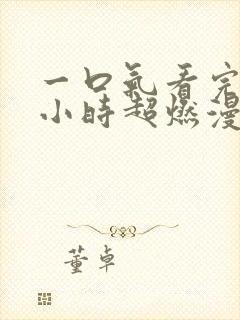 一口气看完
小时超燃漫
董卓